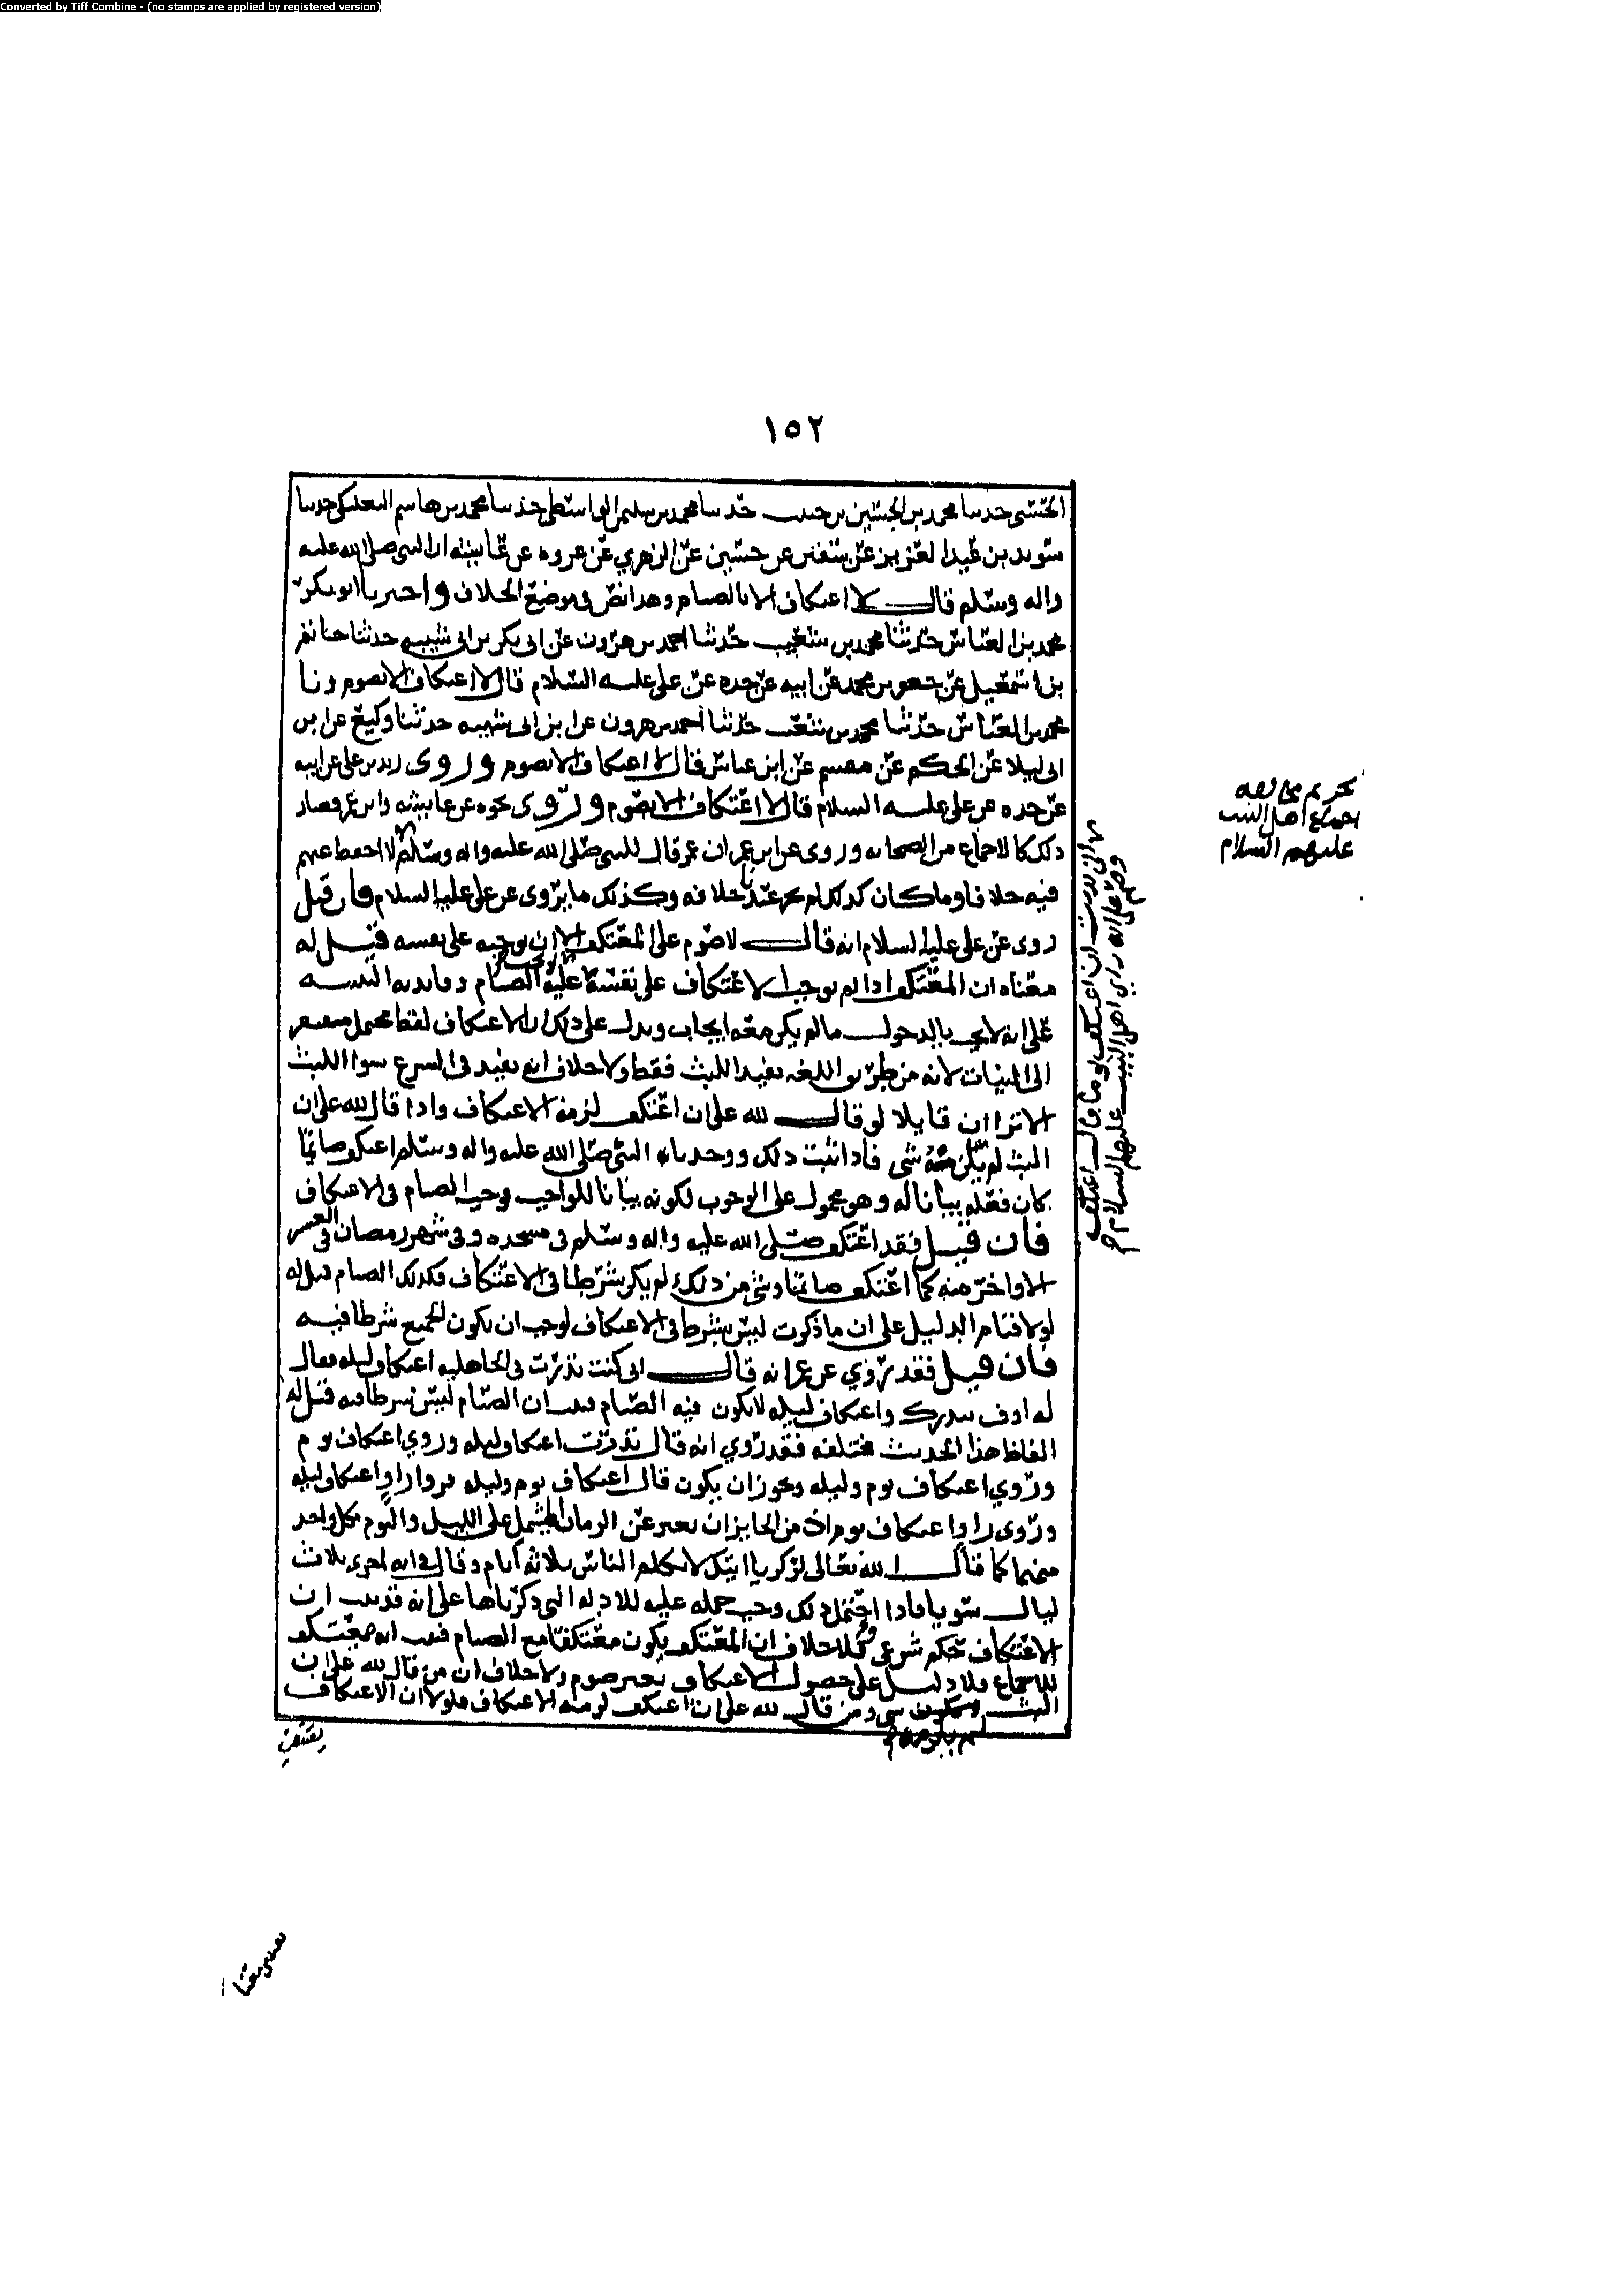 Converted by Tiff Combine - (no stamps are applied by registered version)
١٥٢
حدثنا محمد بن الحسين بن حدثنا محمد بن سليمن الواسطي حدثنا محمد بن هاشم البعلبكي حدثنا
سويد بن عبد العزيز عن سفين عن حسين عن الزهري عن عروه عن عائشه ان النبي صلى الله عليه
واله وسلم قال لا اعتكاف الا بالصيام وهذا نص في موضع الخلاف واخبرنا ابو بكر
محمد بن العباس حدثنا محمد بن شعيب حدثنا احمد بن هرون عن ابي بكر بن ابي شيبه حدثنا حاتم
بن اسمعيل عن جعفر بن محمد عن ابيه عن جده عن علي عليه السلام قال لا اعتكاف الا بصوم ونا
محمد بن العباس حدثنا محمد بن شعيب حدثنا احمد بن هرون عن ابن ابي شيبه حدثنا وكيع عن ابن
ابي ليلا عن الحكم عن مقسم عن ابن عباس قال لا اعتكاف الا بصوم وروى زيد بن علي عن ابيه
عن جده عن علي عليه السلام قال لا اعتكاف الا بصوم وروى نحوه عن عائشه وابن عمر فصار
ذلك كالاجماع من الصحابه وروى عن ابن عمر ان عمر قال للنبي صلى الله عليه واله وسلم لا احفظ عنهم
فيه خلافا وما كان كذلك لم يجز عندنا خلافه وكذلك ما يروى عن علي عليه السلام فان قيل
روى عن علي عليه السلام انه قال لا صوم على المعتكف الا ان يوجبه على نفسه قيل له
معناه ان المعتكف اذا لم يوجب الاعتكاف على نفسه لا يجب عليه الصيام وفايدته التنبيه
على انه لا يجب بالدخول ما لم يكن معه ايجاب ويدل على ذلك ان الاعتكاف لفظ مجمل مفتقر
الى البيان لانه من طريق اللغه يفيد اللبث فقط ولا خلاف انه يفيد في الشرع سوا اللبث
الا ترا ان قايلا لو قال لله علي ان اعتكف لزمه الاعتكاف واذا قال لله علي ان
البث لم يكن شي فاذا ثبت ذلك ووجدنا النبي صلى الله عليه واله وسلم اعتكف صائما
كان فعله بيانا له وهو محمول على الوجوب لكونه بيانا للواجب وجب الصيام في الاعتكاف
فان قيل فقد اعتكف صلى الله عليه واله وسلم في مسجده وفي شهر رمضان في العشر
الاواخر منه كما اعتكف صائما وشي من ذلك لم يكن شرطا في الاعتكاف فكذلك الصيام قيل له
لولا قيام الدليل على ان ما ذكرت ليس بشرط في الاعتكاف لوجب ان يكون الجميع شرطا فيه
فان قيل فقد روي عن عمر انه قال اني كنت نذرت في الجاهليه اعتكاف ليله فقال
له اوف بنذرك واعتكاف ليله لا يكون فيه الصيام فبان ان الصيام ليس بشرط فيه قيل له
الفاظ هذا الحديث مختلفه فقد روي انه قال نذرت اعتكاف ليله وروي اعتكاف يوم
وروي اعتكاف يوم وليله ويجوز ان يكون قال اعتكاف يوم وليله فروا راو اعتكاف ليله
وروى راو اعتكاف يوم اذ من الجايز ان يعبر عن الزمان المشتمل على الليل واليوم بكل واحد
منهما كما قال الله تعالى لزكريا ايتك الا تكلم الناس ثلاثه ايام وقال في ايه اخرى ثلاث
ليال سويا فاذا احتمل ذلك وجب حمله عليه للادله التي ذكرناها على انه قد ثبت ان
الاعتكاف حكم شرعي ولا خلاف ان المعتكف يكون معتكفا مع الصيام فثبت انه معتكف
للاجماع ولا دليل على حصول الاعتكاف بغير صوم ولا خلاف ان من قال لله علي ان
البث لم يلزمه شي ومن قال لله علي ان اعتكف لزمه الاعتكاف فلولا ان الاعتكاف
يقتضي
تحريم مخالفه
اجماع اهل البيت
عليهم السلام
اني نذرت ان اعتكف يوما قال اعتكف
اهل البيت عليهم السلام